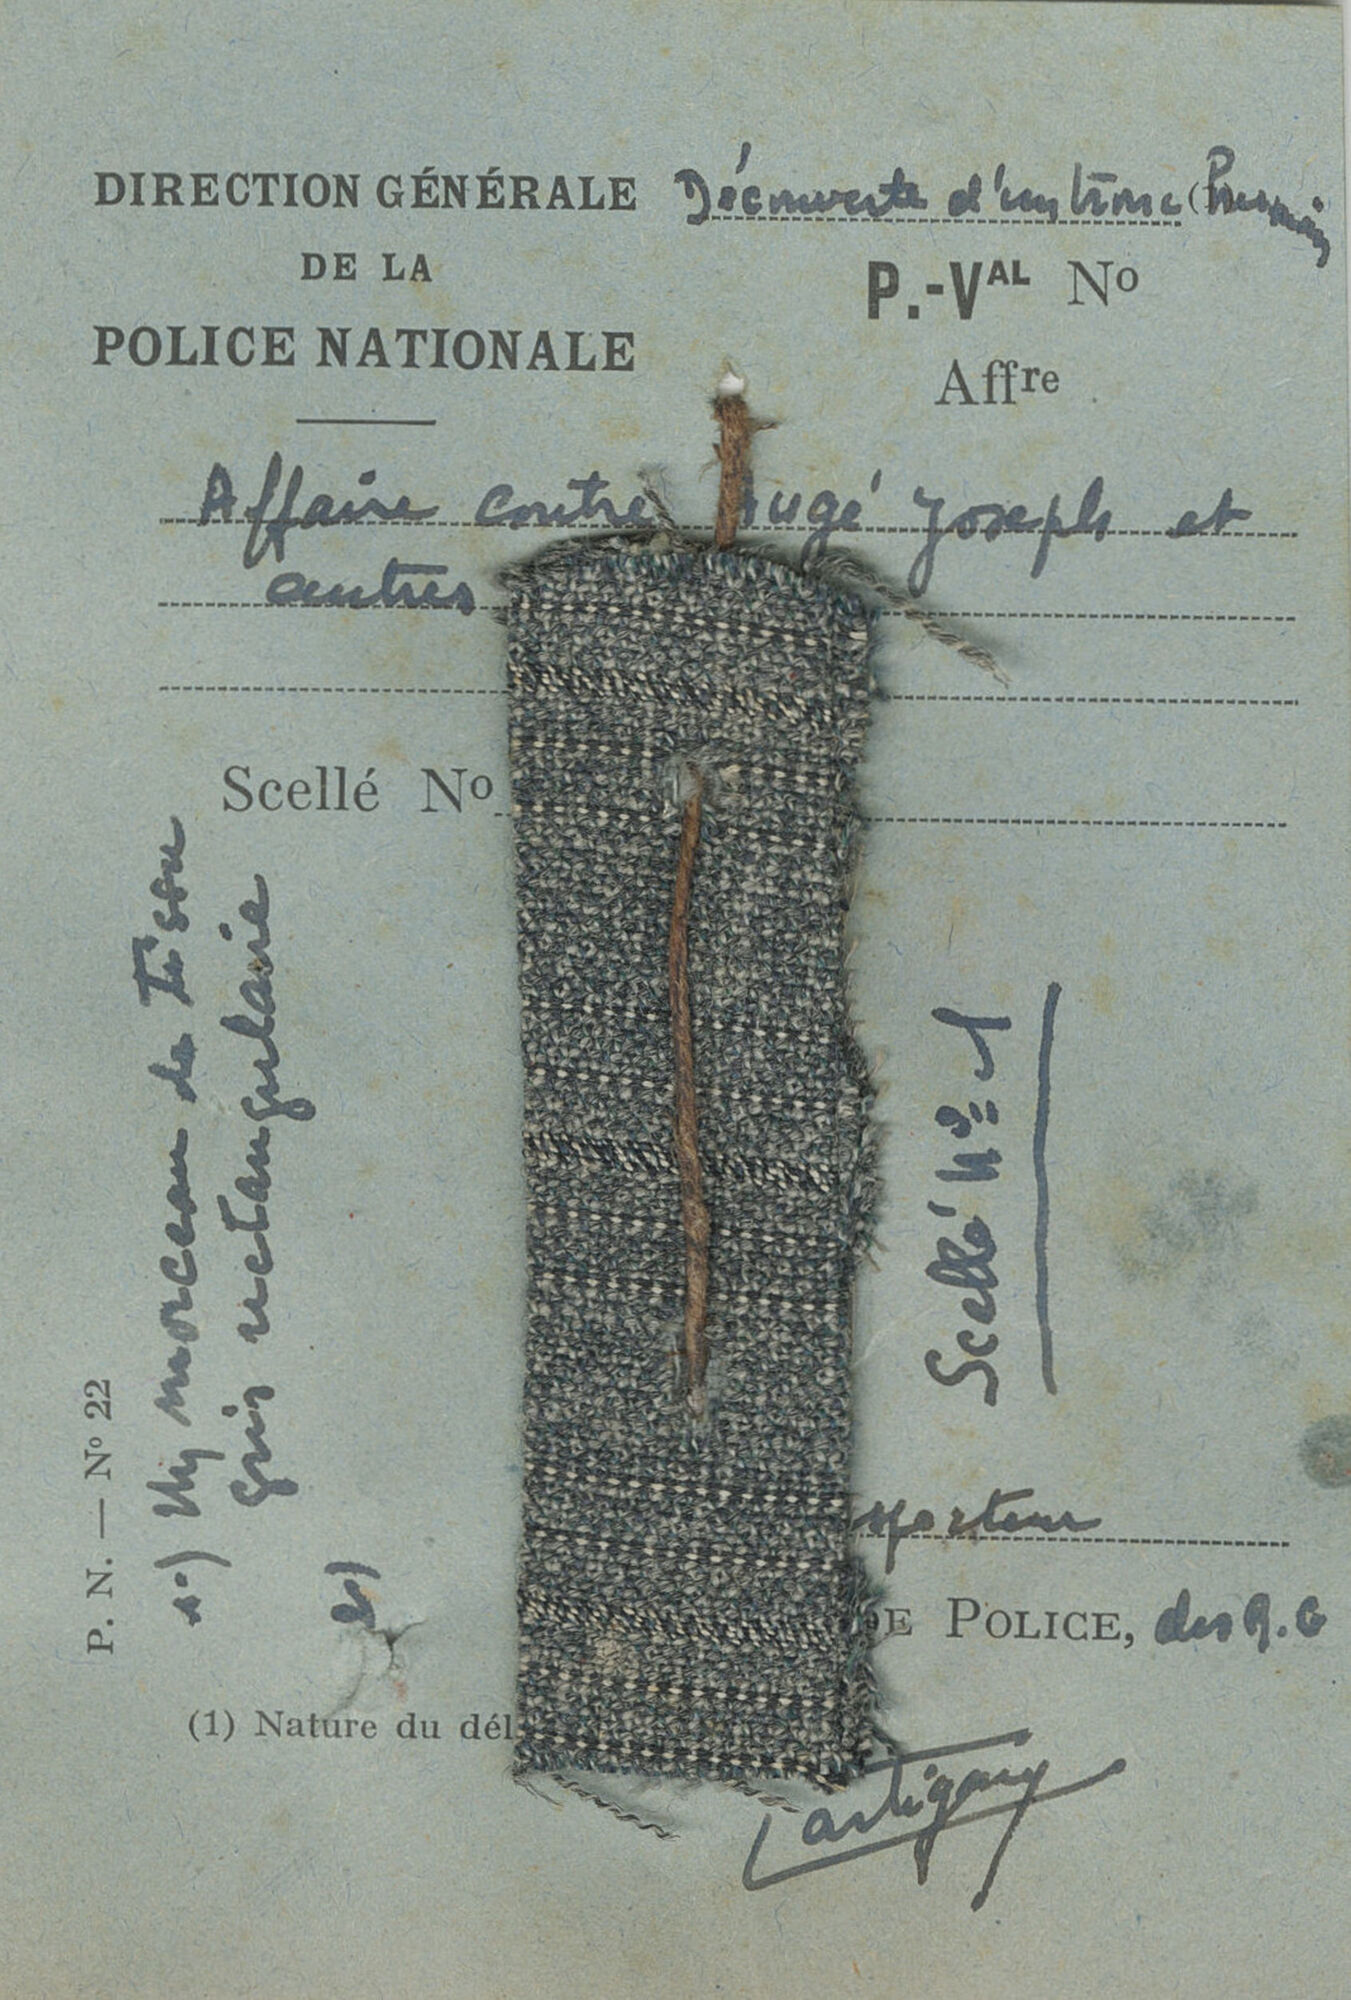 DIRECTION GÉNÉRALE
DE LA
POLICE NATIONALE
Découverte d'un tronc (humain)
P.-VAL No
Affre
Affaire contre augé Joseph et
autres
Scellé No
1º) Un morceau de tissu
gris rectangulaire
2º)
Scellé Nº 1
P. N. — No 22
DE POLICE, des R.G
(1) Nature du dél
Lartigau